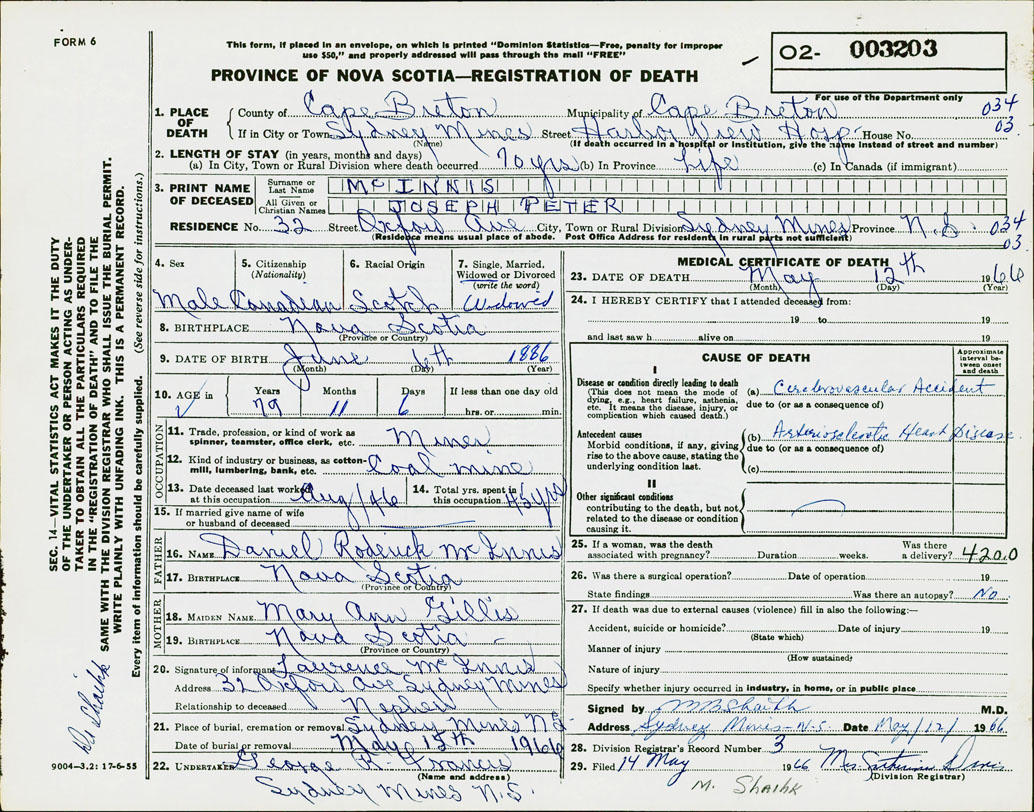 FORM 6
This form, if placed in an envelope, on which is printed "Dominion Statistics—Free, penalty for improper
use $50," and properly addressed will pass through the mail "FREE"
PROVINCE OF NOVA SCOTIA—REGISTRATION OF DEATH
02- 003203
For use of the Department only
1. PLACE OF DEATH { County of Cape Breton Municipality of Cape Breton 034
If in City or Town Sydney Mines Street Harbor View Hosp. House No. 03
(Name) (If death occurred in a hospital or institution, give the name instead of street and number)
2. LENGTH OF STAY (in years, months and days)
(a) In City, Town or Rural Division where death occurred 70 yrs (b) In Province Life (c) In Canada (if immigrant)
3. PRINT NAME OF DECEASED { Surname or Last Name McINNIS
All Given or Christian Names JOSEPH PETER
RESIDENCE No. 32 Street Oxford Ave City, Town or Rural Division Sydney Mines Province N.S. 034
(Residence means usual place of abode. Post Office Address for residents in rural parts not sufficient) 03
4. Sex 5. Citizenship (Nationality) 6. Racial Origin 7. Single, Married, Widowed or Divorced (write the word)
Male Canadian Scotch Widowed
8. BIRTHPLACE Nova Scotia
(Province or Country)
9. DATE OF BIRTH June 6th 1886
(Month) (Day) (Year)
10. AGE in Years Months Days If less than one day old
79 11 6 hrs. or min.
OCCUPATION
11. Trade, profession, or kind of work as spinner, teamster, office clerk, etc. Miner
12. Kind of industry or business, as cotton-mill, lumbering, bank, etc. Coal mine
13. Date deceased last worked at this occupation Aug/46 14. Total yrs. spent in this occupation 45 yrs
15. If married give name of wife or husband of deceased
FATHER
16. NAME Daniel Roderick McInnis
17. BIRTHPLACE Nova Scotia
(Province or Country)
MOTHER
18. MAIDEN NAME Mary Ann Gillis
19. BIRTHPLACE Nova Scotia
(Province or Country)
20. Signature of informant Laurence McInnis
Address 32 Oxford Ave Sydney Mines
Relationship to deceased Nephew
21. Place of burial, cremation or removal Sydney Mines N.S.
Date of burial or removal May 15th 1966
22. UNDERTAKER George R. Francis
(Name and address)
Sydney Mines N.S.
MEDICAL CERTIFICATE OF DEATH
23. DATE OF DEATH May 12th 1966
(Month) (Day) (Year)
24. I HEREBY CERTIFY that I attended deceased from:
19 to 19
and last saw h alive on 19
CAUSE OF DEATH
Approximate interval between onset and death
I
Disease or condition directly leading to death
(This does not mean the mode of dying, e.g., heart failure, asthenia, etc. It means the disease, injury, or complication which caused death.)
(a) Cerebrovascular Accident
due to (or as a consequence of)
Antecedent causes
Morbid conditions, if any, giving rise to the above cause, stating the underlying condition last.
(b) Arteriosclerotic Heart Disease.
due to (or as a consequence of)
(c)
II
Other significant conditions
contributing to the death, but not related to the disease or condition causing it.
25. If a woman, was the death associated with pregnancy? Duration weeks. Was there a delivery? 420.0
26. Was there a surgical operation? Date of operation 19
State findings Was there an autopsy? No.
27. If death was due to external causes (violence) fill in also the following:—
Accident, suicide or homicide? Date of injury 19
(State which)
Manner of injury
(How sustained)
Nature of injury
Specify whether injury occurred in industry, in home, or in public place
Signed by MBShaikh M.D.
Address Sydney Mines N.S. Date May/12/ 1966
28. Division Registrar's Record Number 3
29. Filed 14 May 1966 Mrs Davis
(Division Registrar)
M. Shaihk
SEC. 14—VITAL STATISTICS ACT MAKES IT THE DUTY
OF THE UNDERTAKER OR PERSON ACTING AS UNDER-
TAKER TO OBTAIN ALL THE PARTICULARS REQUIRED
IN THE "REGISTRATION OF DEATH" AND TO FILE THE
SAME WITH THE DIVISION REGISTRAR WHO SHALL ISSUE THE BURIAL PERMIT.
WRITE PLAINLY WITH UNFADING INK. THIS IS A PERMANENT RECORD.
Every item of information should be carefully supplied. (See reverse side for instructions.)
Dr Shaihk
9004-3.2: 17-6-55